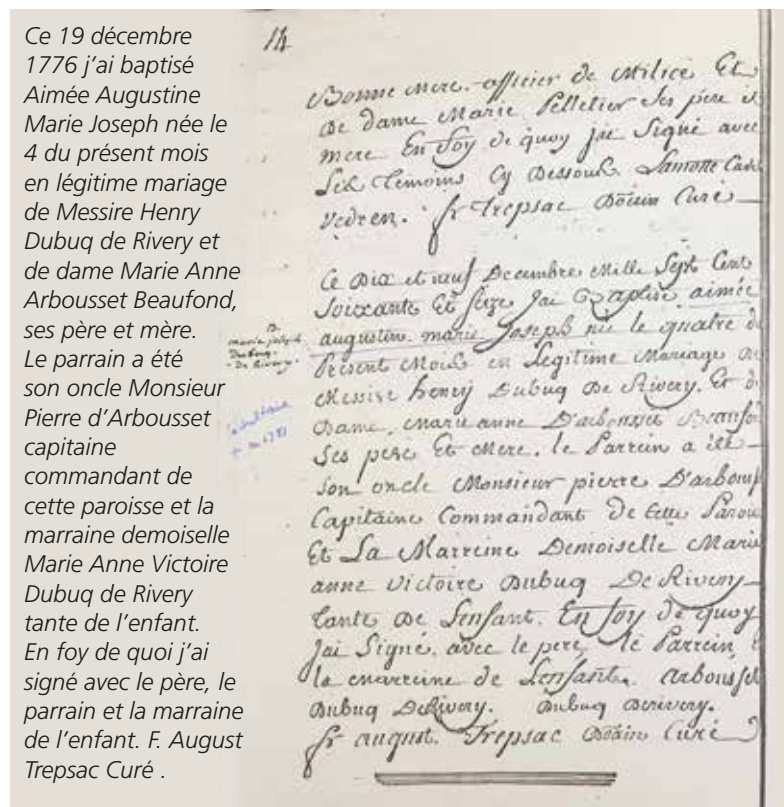 Ce 19 décembre
1776 j’ai baptisé
Aimée Augustine
Marie Joseph née le
4 du présent mois
en légitime mariage
de Messire Henry
Dubuq de Rivery et
de dame Marie Anne
Arbousset Beaufond,
ses père et mère.
Le parrain a été
son oncle Monsieur
Pierre d’Arbousset
capitaine
commandant de
cette paroisse et la
marraine demoiselle
Marie Anne Victoire
Dubuq de Rivery
tante de l’enfant.
En foy de quoi j’ai
signé avec le père, le
parrain et la marraine
de l’enfant. F. August
Trepsac Curé .
14
Bonne mere. officier de Milice Et
De dame Marie Pelletier Ses pere et
mere En foy de quoy Jai Signé avec
Les temoins Cy Dessous Lamotte
vedren. fr Trepsac Curé
Ce Dix et neuf Decembre Mille Sept Cent
Soixante Et Seize Jai Baptisé aimée
augustin. marie Joseph née le quatre d
Present Mois en Legitime Mariage de
Messire henry Dubuq De Rivery. Et d
Dame. marie anne D'arbousset Beaufo
Ses pere Et Mere. le Parrein a été
son oncle Monsieur pierre D'arbouss
Capitaine Commandant de Cette Paroi
Et La Marreine Demoiselle Marie
anne victoire Dubuq De Rivery
tante De Lenfant. En foy de quoy
Jai Signé. avec le pere, le Parrein,
la marreine de Lenfant. Arbousset
Dubuq DeRivery. Dubuq Derivery.
fr august. Trepsac Curé
B.
marie joseph
Dubuq
de Rivery.